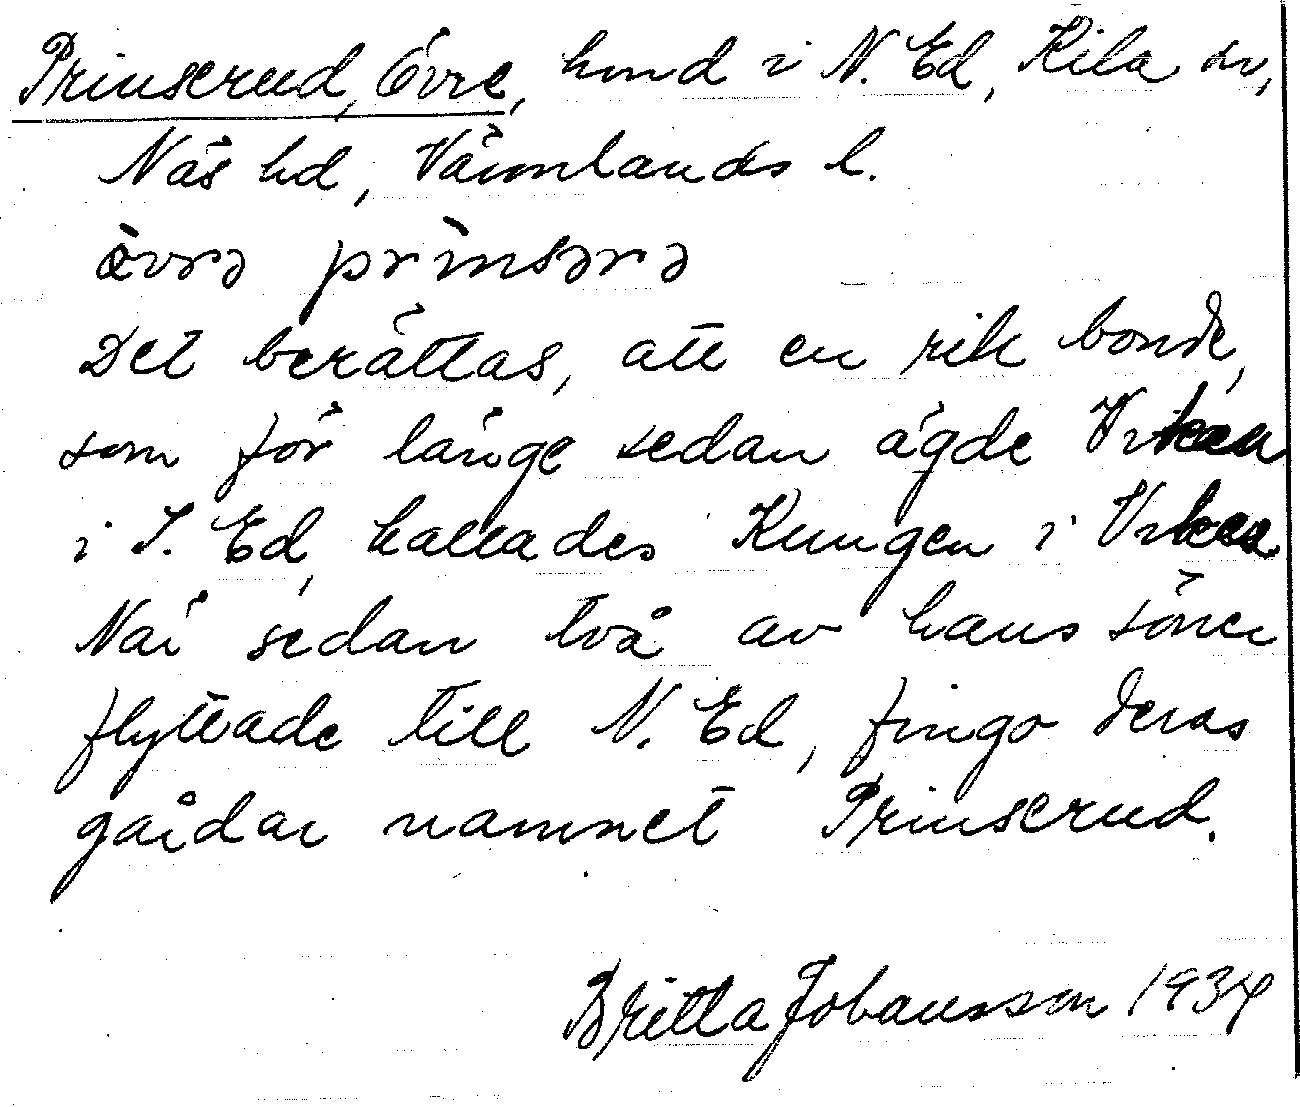 Prinserud, Övre, hmd i N. Ed, Kila sn,
Näs hd, Värmlands l.
òvrə prìnsərə
Det berättas, att en rik bonde,
som för länge sedan ägde
i S. Ed, kallades Kungen i
När sedan två av hans söner
flyttade till N. Ed, fingo deras
gårdar namnet Prinserud.
Britta Johansson 1934